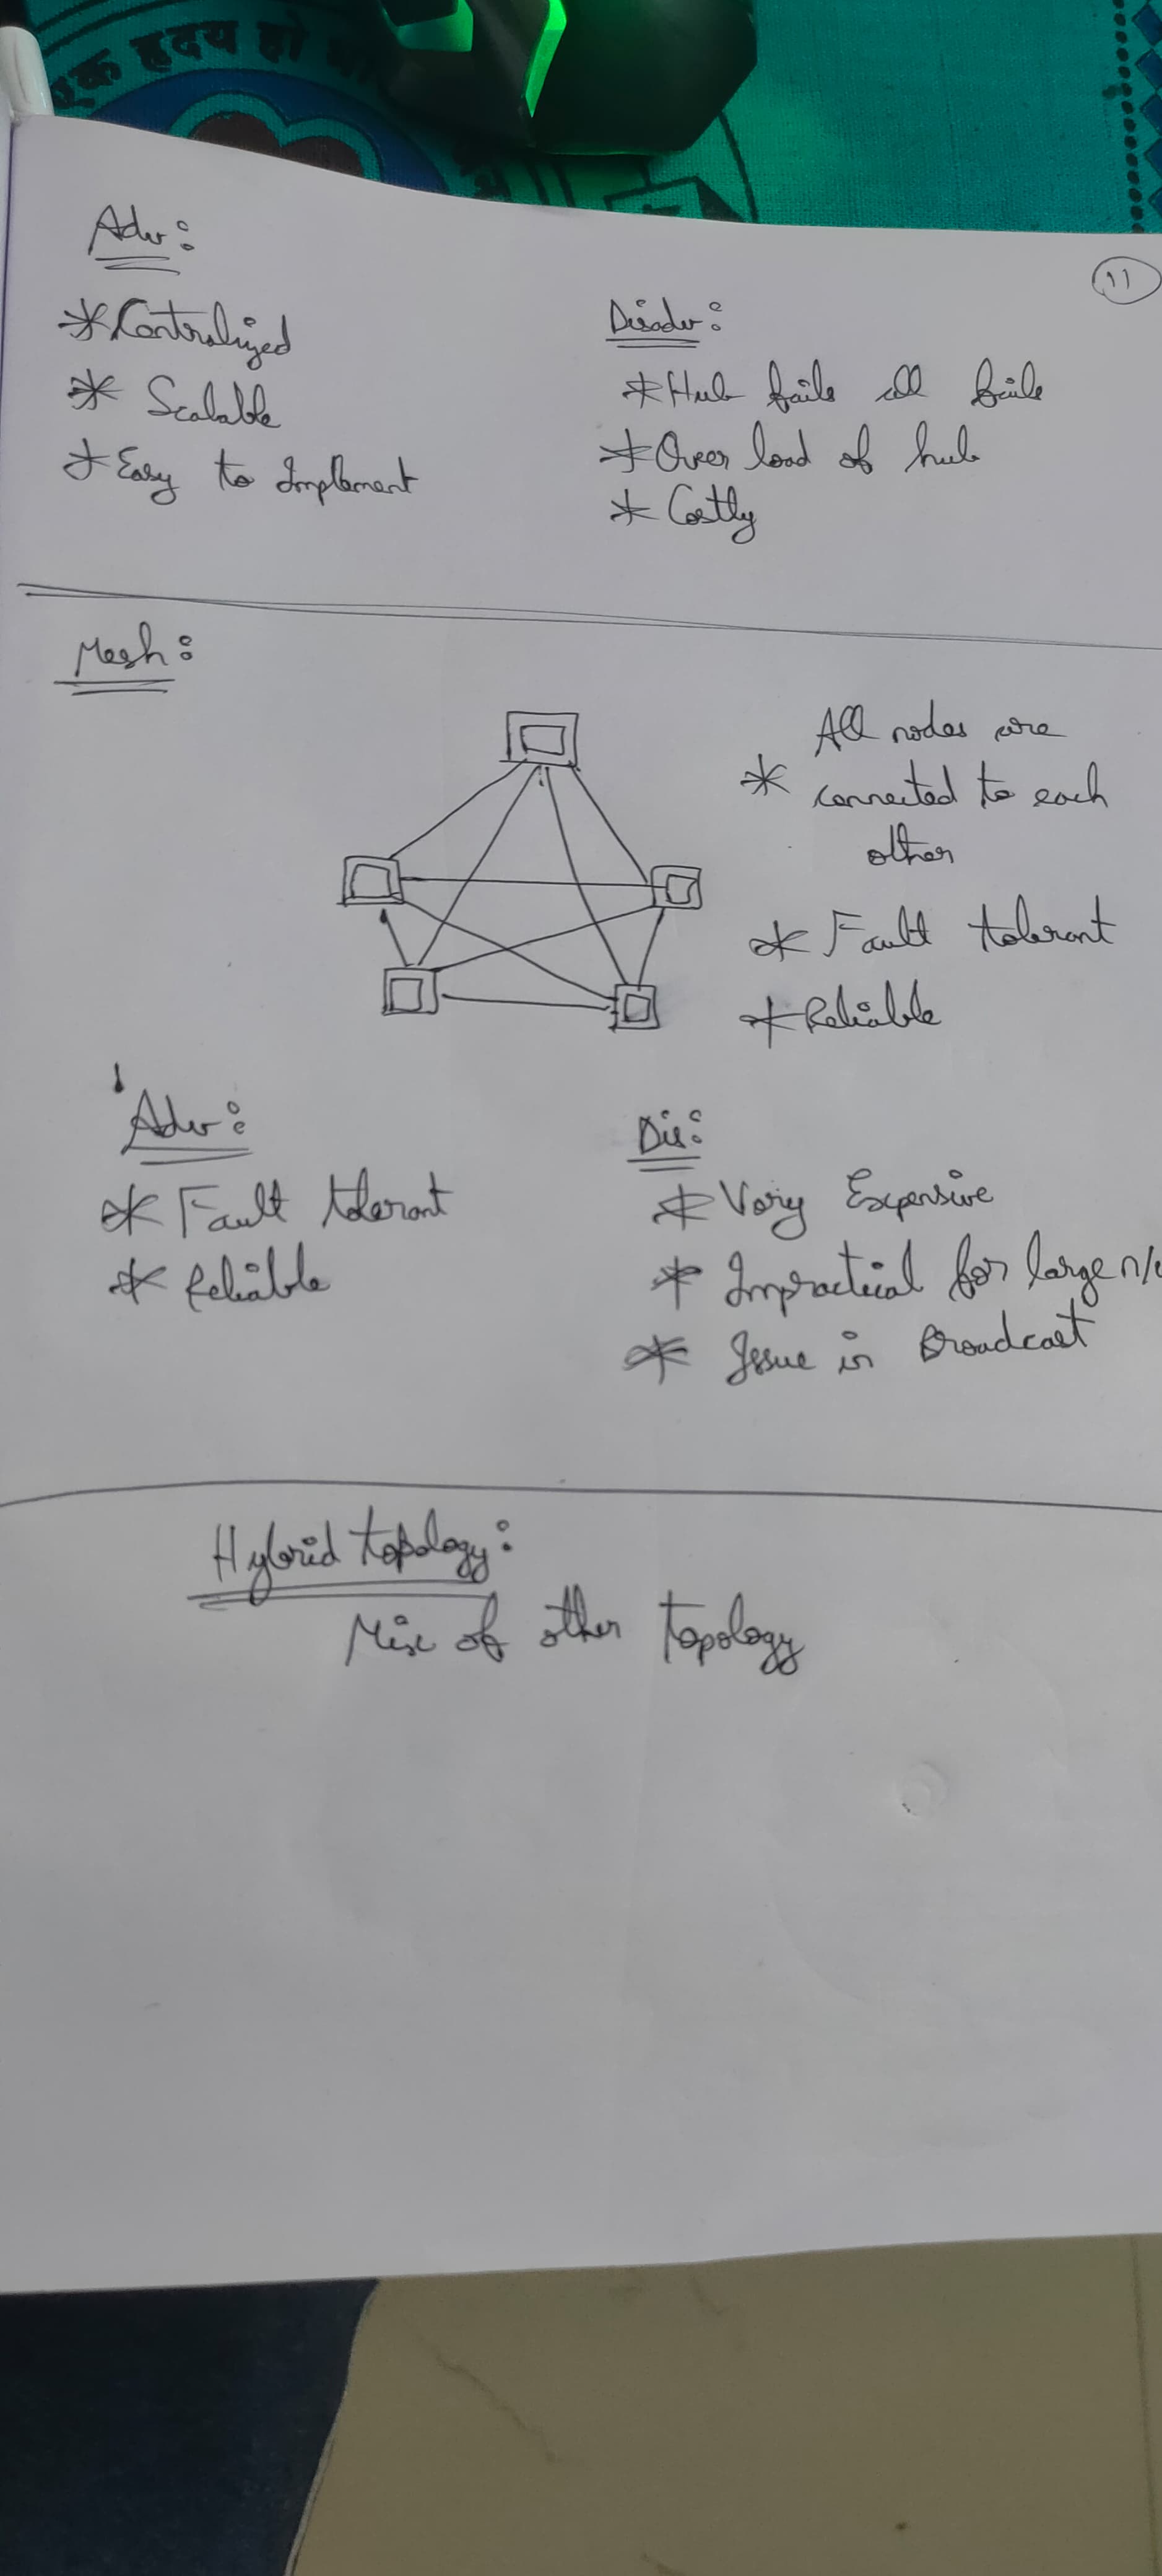 एक हृदय हो
11
Adv:
* Centralized
* Scalable
* Easy to Implement
Disadv:
* Hub fails all fails
* Over load of hub
* Costly
Mesh:
* All nodes are
connected to each
other
* Fault tolerant
* Reliable
Adv:
* Fault tolerant
* Reliable
Dis:
* Very Expensive
* Impractical for large n/
* Issue in Broadcast
Hybrid topology:
Mix of other topology